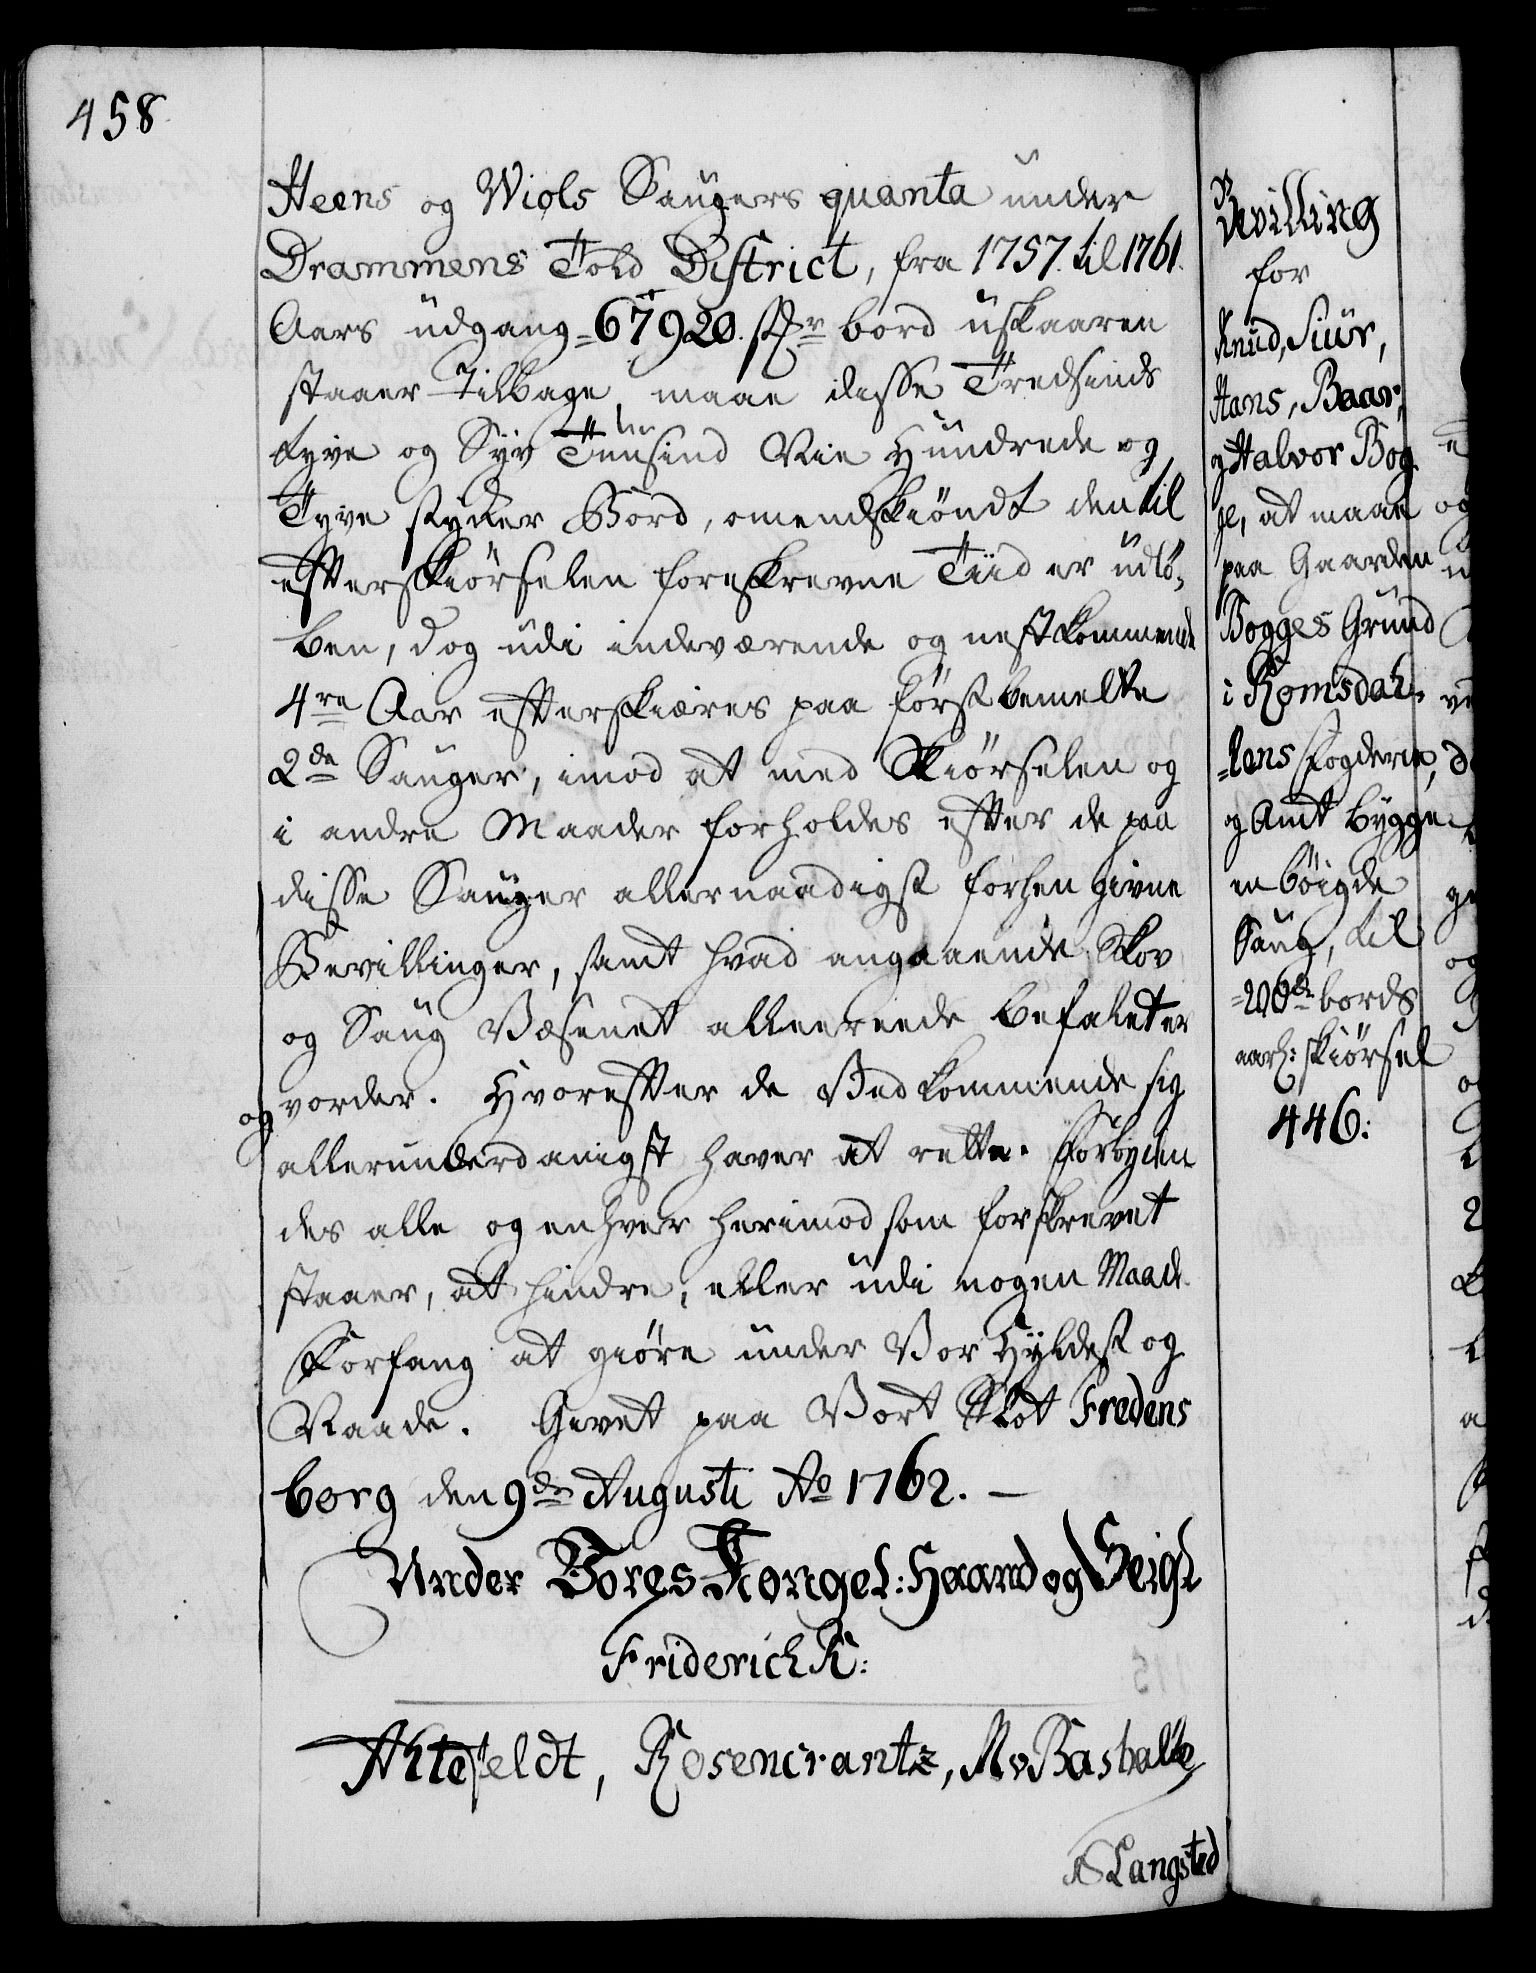 458
Heens og Wiols Saugers quanta under
Drammens Told District, fra 1757. til 1761.
Aars udgang =67920. stk:r bord uskaaren
staaer Tilbage, maae disse Tredsinds
tyve og Syv Tusind Nie Hundrede og
Tyve stycker Bord, omendskiøndt den til
efterskiørselen foreskrevne Tiid er udlø¬
ben, dog udi indeværende og nestkommende
4re Aar efterskiæres paa førstbemelte
2de Sauger, imod at med Skiørselen og
i andre Maader forholdes efter de paa
disse Sauger allernaadigst forhen givne
Bevillinger, samt hvad angaaende Skov
og Saug Væsenet allereede befalet er
og vorder. Hvorefter de Vedkommende sig
allerunderdanigst haver at rette. Forbyden
des alle og enhver herimod som forskrevet
staaer, at hindre, eller udi nogen Maade
Forfang at giøre under Vor Hyldest og
Naade. Givet paa Vort Slot Fredens
borg den 9de Augusti Ao 1762. —
Under Vores Kongel: Haand og Seigl
Friderich R:
Ahlefeldt, Rosencrantz,
Langsted
Bevilling
for
Knud, Siur,
Hans, Baar,
og Halvor Bog
ge, at maae
paa Gaarden
Bogges Grund
i Romsdah¬
lens Fogderie,
og Amt bygge
en bøigde
Saug, til
=200de bords
aarl: skiørsel
446: